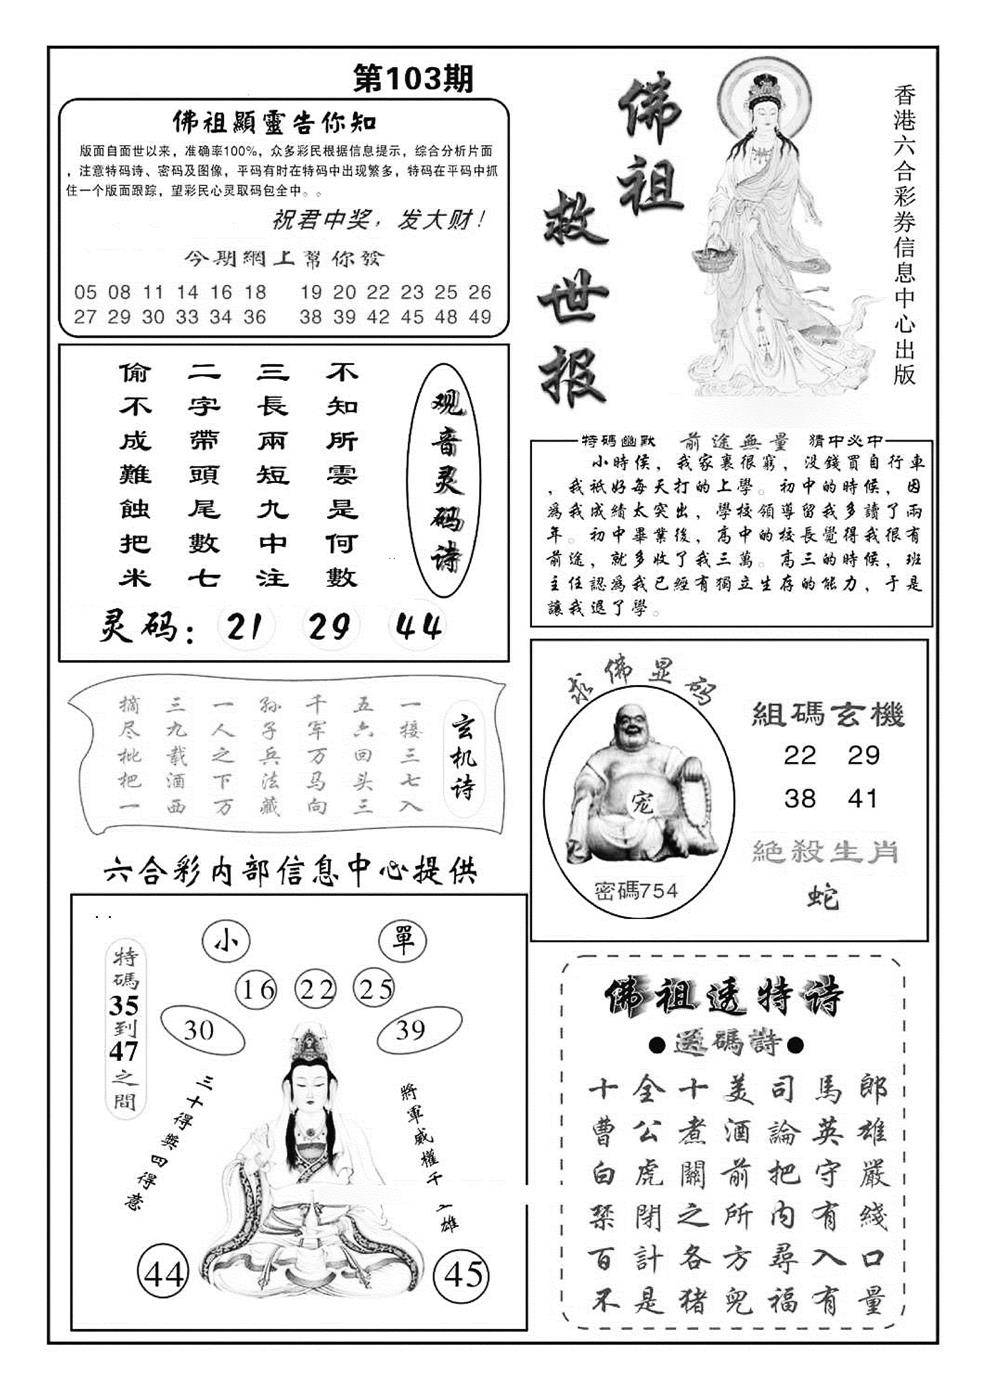 第103期
佛祖顯靈告你知
版面自面世以来，准确率100%，众多彩民根据信息提示，综合分析片面
，注意特码诗、密码及图像，平码有时在特码中出现繁多，特码在平码中抓
住一个版面跟踪，望彩民心灵取码包全中。。
祝君中奖，发大财！
今期網上幫你發
05 08 11 14 16 18 19 20 22 23 25 26
27 29 30 33 34 36 38 39 42 45 48 49
佛祖
救世报
香港六合彩券信息中心出版
观音灵码诗
不知所雲是何數
三長兩短九中注
二字帶頭尾數七
偷不成難蝕把米
灵码：21 29 44
特碼幽默 前途無量 猜中必中
小時侯，我家裏很窮，没錢買自行車
，我祇好每天打的上學。初中的時候，因
爲我成績太突出，學校領導留我多讀了兩
年。初中畢業後，高中的校長覺得我很有
前途，就多收了我三萬。高三的時候，班
主任認爲我已經有獨立生存的能力，于是
讓我退了學。
玄机诗
一接三七入
五六回头三
千军万马向
孙子兵法藏
一人之下万
三九载酒西
摘尽枇把一
六合彩内部信息中心提供
求佛显码
宠
密碼754
組碼玄機
22 29
38 41
絶殺生肖
蛇
小 單
16 22 25
30 39
特碼35到47之間
三十得獎四得意
將軍威權千
雄
44 45
佛祖透特诗
●透碼詩●
十全十美司馬郎
曹公煮酒論英雄
白虎關前把守嚴
禁閉之所内有綫
百計各方尋入口
不是猪兜福有量